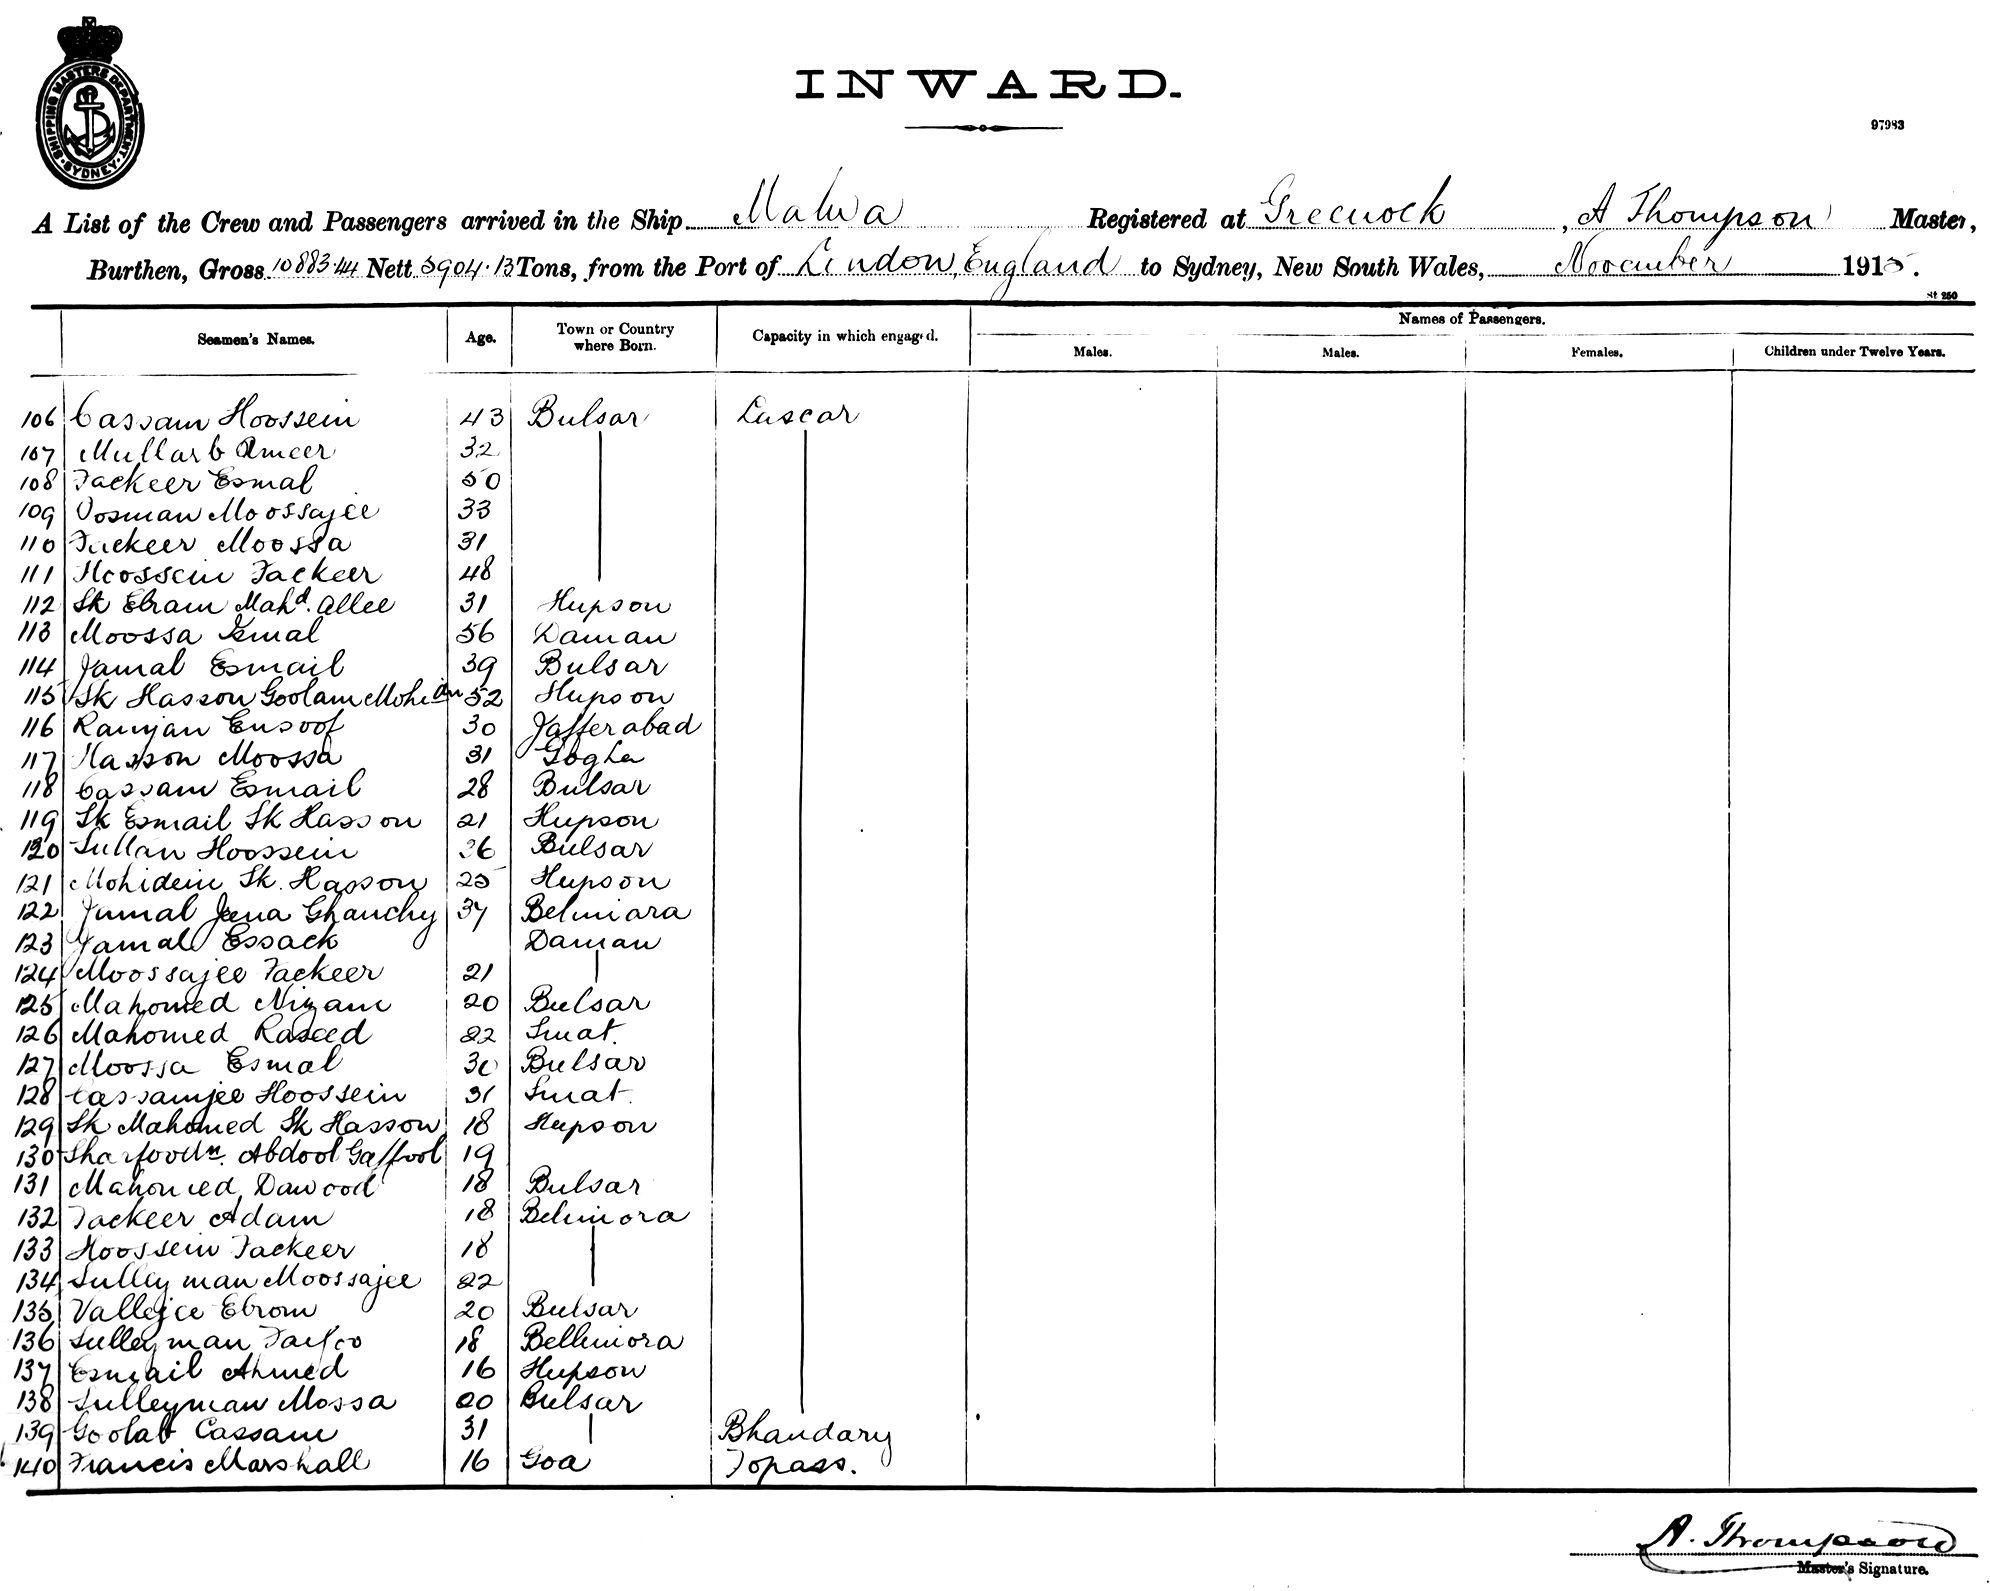 SHIPPING MASTERS DEPARTMENT · SYDNEY ·
INWARD.
97983
A List of the Crew and Passengers arrived in the Ship Malwa Registered at Greenock, A Thompson Master,
Burthen, Gross 10883.44 Nett 5904.13 Tons, from the Port of London, England to Sydney, New South Wales, November 1915.
St 250
Seamen's Names. Age. Town or Country where Born. Capacity in which engaged. Names of Passengers.
Males. Males. Females. Children under Twelve Years.
106 Cassam Hoossein 43 Bulsar Lascar
107 Mullarb Ameer 32
108 Fackeer Esmal 50
109 Oosman Moossajee 33
110 Fackeer Moossa 31
111 Hoossein Fackeer 48
112 Sk Ebram Mahd. Allee 31 Hupson
113 Moossa Esmal 56 Daman
114 Jamal Esmail 39 Bulsar
115 Sk Hasson Goolam Mohidin 52 Hupson
116 Ramjan Eusoof 30 Jafferabad
117 Hasson Moossa 31 Gogha
118 Cassam Esmail 28 Bulsar
119 Sk Esmail Sk Hasson 21 Hupson
120 Sultan Hoossein 36 Bulsar
121 Mohidein Sk. Hasson 25 Hupson
122 Jamal Jeena Ghanchy 37 Belmiora
123 Jamal Essack Daman
124 Moossajee Fackeer 21
125 Mahomed Nizam 20 Bulsar
126 Mahomed Raseed 22 Surat.
127 Moossa Esmal 30 Bulsar
128 Cassamjee Hoossein 31 Surat.
129 Sk Mahomed Sk Hasson 18 Hupson
130 Sharfoodn. Abdool Gaffool 19
131 Mahomed Dawood 18 Bulsar
132 Fackeer Adam 18 Belmiora
133 Hoossein Fackeer 18
134 Sulleyman Moossajee 22
135 Vallejee Ebrom 20 Bulsar
136 Sulleyman 18 Bellmiora
137 Esmail Ahmed 16 Hupson
138 Sulleyman Mossa 20 Bulsar
139 Goolab Cassam 31 Bhandary
140 Francis Marshall 16 Goa Topass.
A. Thompson
Master's Signature.